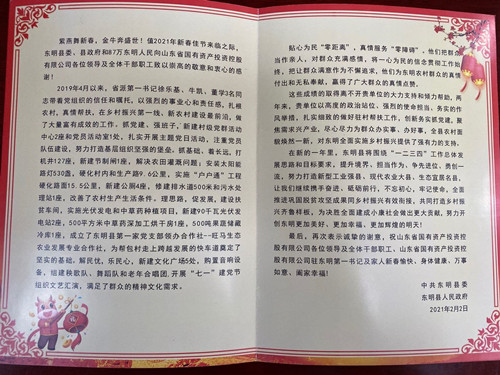 紫燕舞新春，金牛奔盛世！值2021年新春佳节来临之际，
东明县委、县政府和87万东明人民向山东省国有资产投资控股
有限公司各位领导及全体干部职工致以崇高的敬意和衷心的
感谢！
2019年4月以来，省派第一书记徐乐基、牛凯、董学3名同
志带着党组织的信任和嘱托，以强烈的事业心和责任感，扎根
农村，真情帮扶，在乡村振兴第一线、新农村建设最前沿，做
了大量富有成效的工作。抓党建，强班子，新建村级党群活动
中心2座和党员活动室1处，扎实开展主题党日活动，注重党员
队伍建设，努力打造基层组织坚强的堡垒。抓基础，着长远，打
机井17座，新建节制闸1座，解决农田灌溉问题；安装太阳能
路灯530盏，硬化村内和生产路9.6公里，实施“户户通”工程
硬化路面15.5公里，新建公厕4座，修建排水道500米和污水处
理站1座，改善了农村生产生活条件。理思路，促发展，建设扶
贫车间，实施光伏发电和中草药种植项目，新建90千瓦光伏发
电站2座，500平方米中草药深加工烘干房1座，500吨果蔬储藏
冷库1座，成立了东明县第一家党支部领办合作社--旺马生态
农业发展专业合作社，为帮包村走上跨越发展的快车道奠定了
坚实的基础。解民忧，乐民心，新建文化广场5处，购置音响设
备，组建秧歌队、舞蹈队和老年合唱团，开展“七一”建党节
组织文艺汇演，满足了群众的精神文化需求。
贴心为民“零距离”，真情服务“零障碍”，他们把群众
当作亲人，对群众充满感情，将一心为民的信念贯彻工作始
终，把让群众满意作为不懈追求，他们为东明农村群众的真情
付出和无私奉献，赢得了广大群众的赞扬。
这些成绩的取得离不开贵单位的大力支持和倾力帮助，两
年来，贵单位以高度的政治站位、强烈的使命担当、务实的作
风举措，扎实细致的做好驻村帮扶工作，创新务实抓党建，聚
焦需求兴产业，尽心尽力为群众办实事、办好事，全县农村面
貌焕然一新，对东明全面实施乡村振兴提供了强有力的支持。
在新的一年里，东明县将围绕“一二三四”工作总体发
展思路和目标要求，提升境界、担当作为、争先进位、勇创一
流，努力打造新型工业强县、现代农业大县、生态宜居名县，
让我们继续携手奋进、砥砺前行，不忘初心，牢记使命，全面
推进巩固脱贫攻坚成果同乡村振兴有效衔接，共同打造乡村振
兴齐鲁样板，为决胜全面建成小康社会做出更大贡献，努力开
创东明更加美好、更加幸福、更加辉煌的明天！
最后，再次表示诚挚的谢意，祝山东省国有资产投资控股
有限公司各位领导及全体干部职工、山东省国有资产投资控股
有限公司驻东明第一书记及家人新春愉快、身体健康、万事
如意、阖家幸福！
中共东明县委
东明县人民政府
2021年2月2日